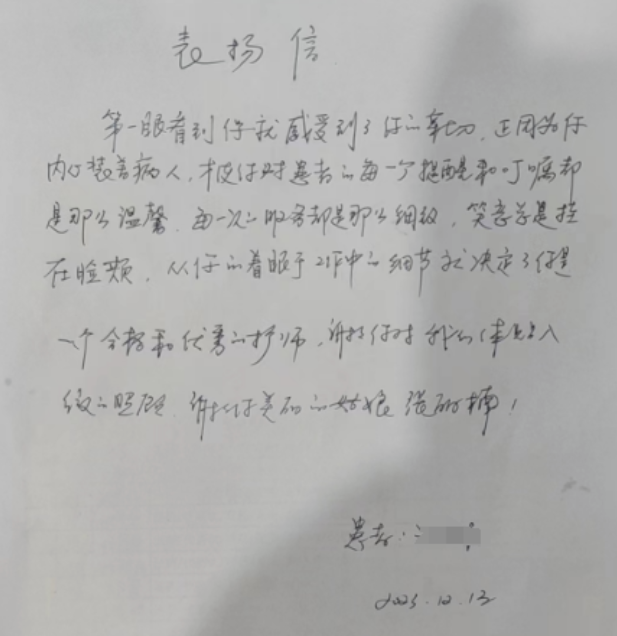 表扬信
第一眼看到你就感受到了你的亲切，正因为你
内心装着病人，你对患者的每一个提醒和叮嘱都
是那么温馨，每一次的服务都是那么细致，笑容总是挂
在脸颊，从你的着眼于工作中的细节就决定了你是
一个合格和优秀的护师，谢谢你对我的体贴入
微的照顾，谢谢你美丽的姑娘张丽楠！
患者：
2023.12.12